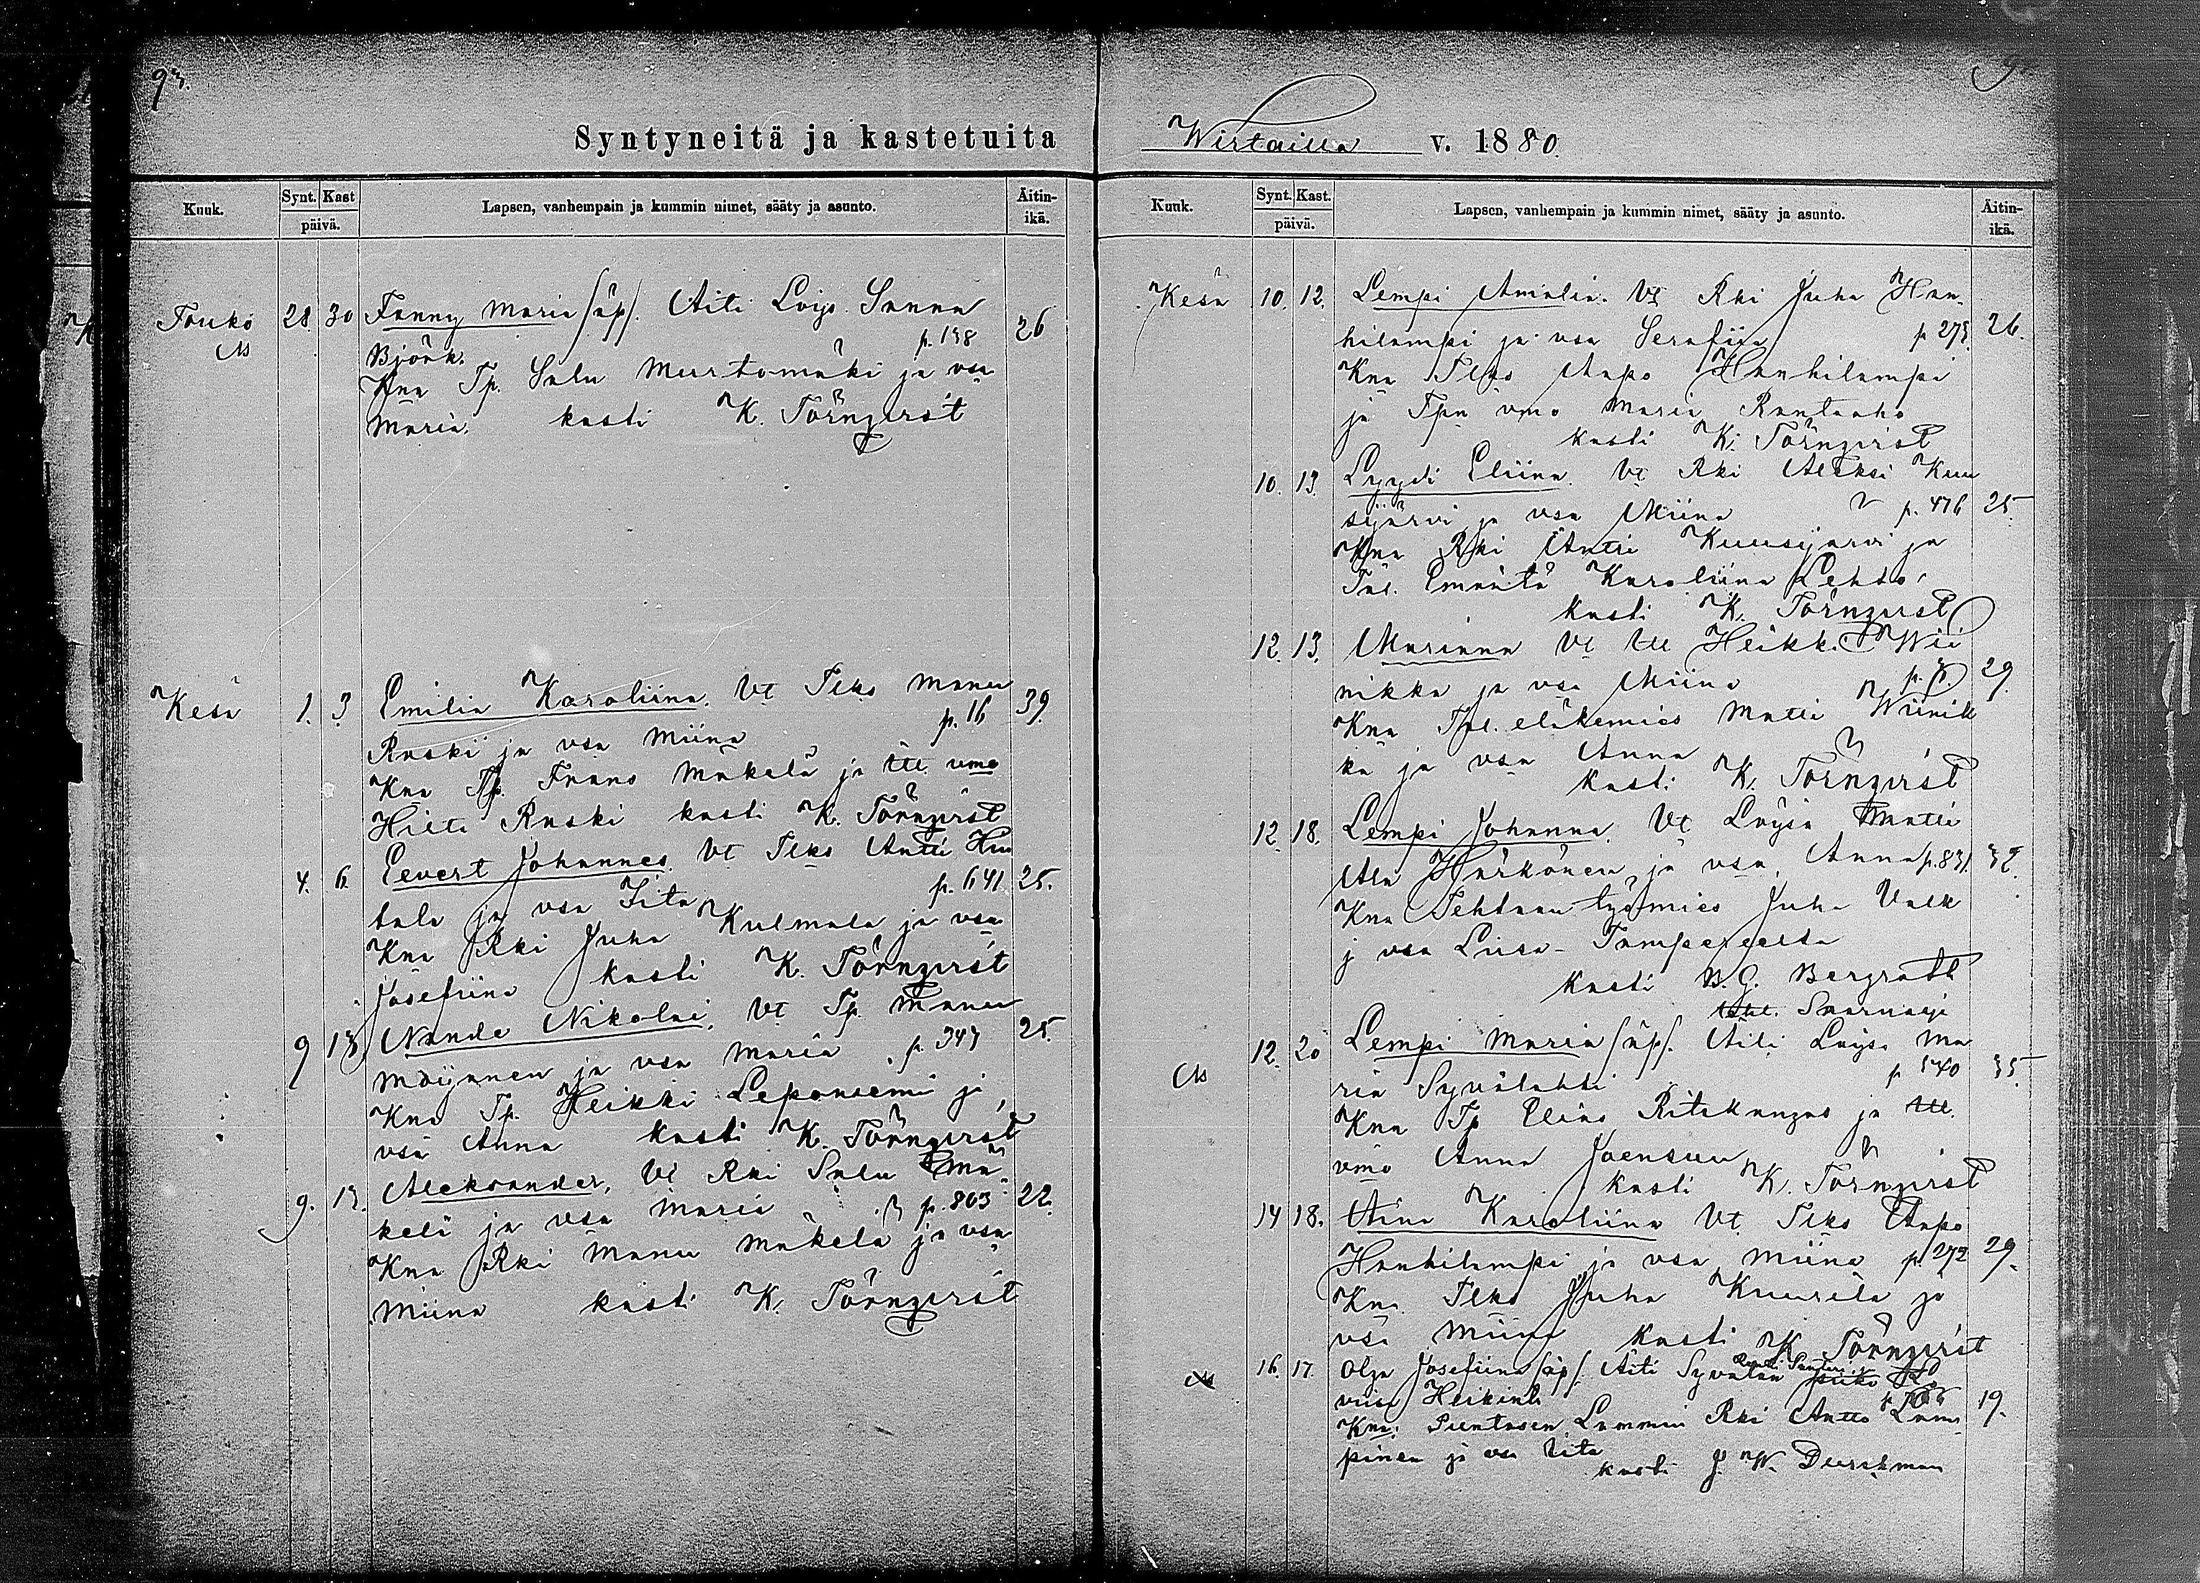 93.
Syntyneitä ja kastetuita
Kuuk. Synt. Kast päivä. Lapsen, vanhempain ja kummin nimet, sääty ja asunto. Äitin-ikä.
Touko 28 30 Fanny Maria (äp). Äiti Lois. Sanna
Björk. p. 138 26
Kna Tp. Salu Murtomäki ja vsa
Maria. kasti K. Törnqvist
Kesä 1. 3. Emilia Karoliina. Vt Tlks Manu
Raski ja vsa Miina p. 16 39.
Kna Tp. Frans Mäkelä ja tll. vmo
Hilta Raski kasti K. Törnqvist
4. 6. Eevert Johannes. Vt Tlks Antti Hu
tala ja vsa Fita p. 641. 25.
Kna Rki Juha Kulmala ja vsa
Josefiina kasti K. Törnqvist
9 13. Nande Nikolai. Vt Tp. Manu
Möijänen ja vsa Maria p. 343 25.
Kna Tp. Heikki Leponiemi ja
vsa Anna kasti K. Törnqvist
9. 13. Aleksander, Vt Rki Salu Mä
kelä ja vsa Maria p. 803 22.
Kna Rki Manu Mäkelä ja vsa
Miina kasti K. Törnqvist
Wirtailla v. 1880.
Kuuk. Synt. Kast. päivä. Lapsen, vanhempain ja kummin nimet, sääty ja asunto. Äitin-ikä.
Kesä 10. 12. Lempi Amalia. Vt Rki Juha Han
hilampi ja vsa Serafiia p 273. 26.
Kna Tlks Aapo Hanhilampi
ja Tpn vmo Maria Rantaaho
kasti K. Törnqvist
10. 13. Lyydi Eliina. Vt Rki Aleksi Kuu
sijärvi ja vsa Miina p. 476 25.
Kna Rki Antti Kuusijärvi ja
Tal. Emäntä Karoliina Lehto.
kasti K. Törnqvist
12. 13. Marianna Vt tll Heikki Wii
nikka ja vsa Miina 29.
Kna Tal. eläkemies Matti Wiinik
ka ja vsa Anna
kasti K. Törnqvist
12. 18. Lempi Johanna. Vt Loisa Matti
Ala Härkönen ja vsa Anna p. 831. 32.
Kna Tehtaan työmies Juha Valk
j vsa Liisa - Tampereelta
kasti B. G. Bergroth
kohl. Saarnaaja
12. 20 Lempi Maria (äp). Äiti Loisa Ma
ria Sywälahti p 540 35.
Kna Tp Elias Ritakangas ja tll.
vmo Anna Joensuu
kasti K. Törnqvist
14 18. Aina Karoliina Vt Tlks Aapo
Hanhilampi ja vsa Miina p. 272 29.
Kna Tlks Juha Kuurila ja
vsa Miina kasti K. Törnqvist
16. 17. Olga Josefiina (äp). Äiti Syvälän
viia Heikint 19.
Kna: Puntasen Lammin Rki Antto Lam
pinen ja vsa Fita
kasti J. W. Durchman